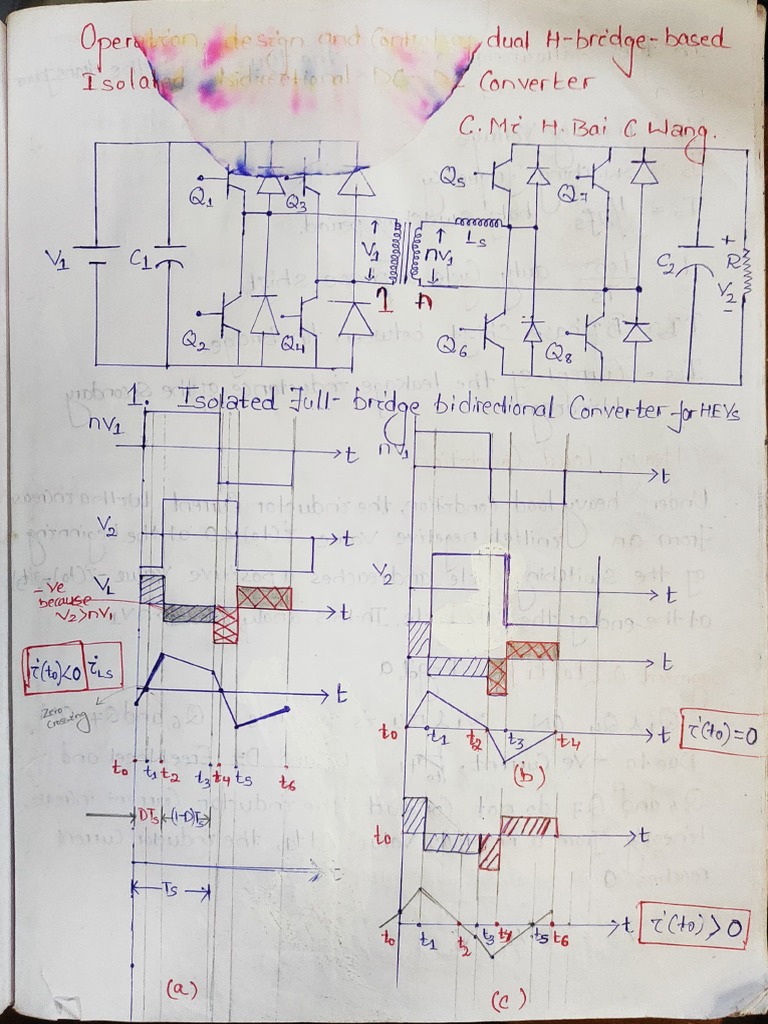 Operation, design and Control of dual H-bridge-based
Isolated bidirectional DC-DC Converter
C. Mi H. Bai C Wang.
Q1 Q3 Q5 Q7
V1 C1 V1 nV1 Ls C2 + R V2 -
1 n
Q2 Q4 Q6 Q8
1. Isolated Full-bridge bidirectional Converter for HEVs
nV1 t nV1 t
V2 t V2 t
VL t t
-ve because V2>nV1
i(t0)<0 iLS t
Zero crossing
t0 t1 t2 t3 t4 t i(t0)=0
(b)
t0 t1 t2 t3 t4 t5 t6
DTs (1-D)Ts
t0 t
Ts
t0 t1 t2 t3 t4 t5 t6 t i(t0)>0
(a) (c)